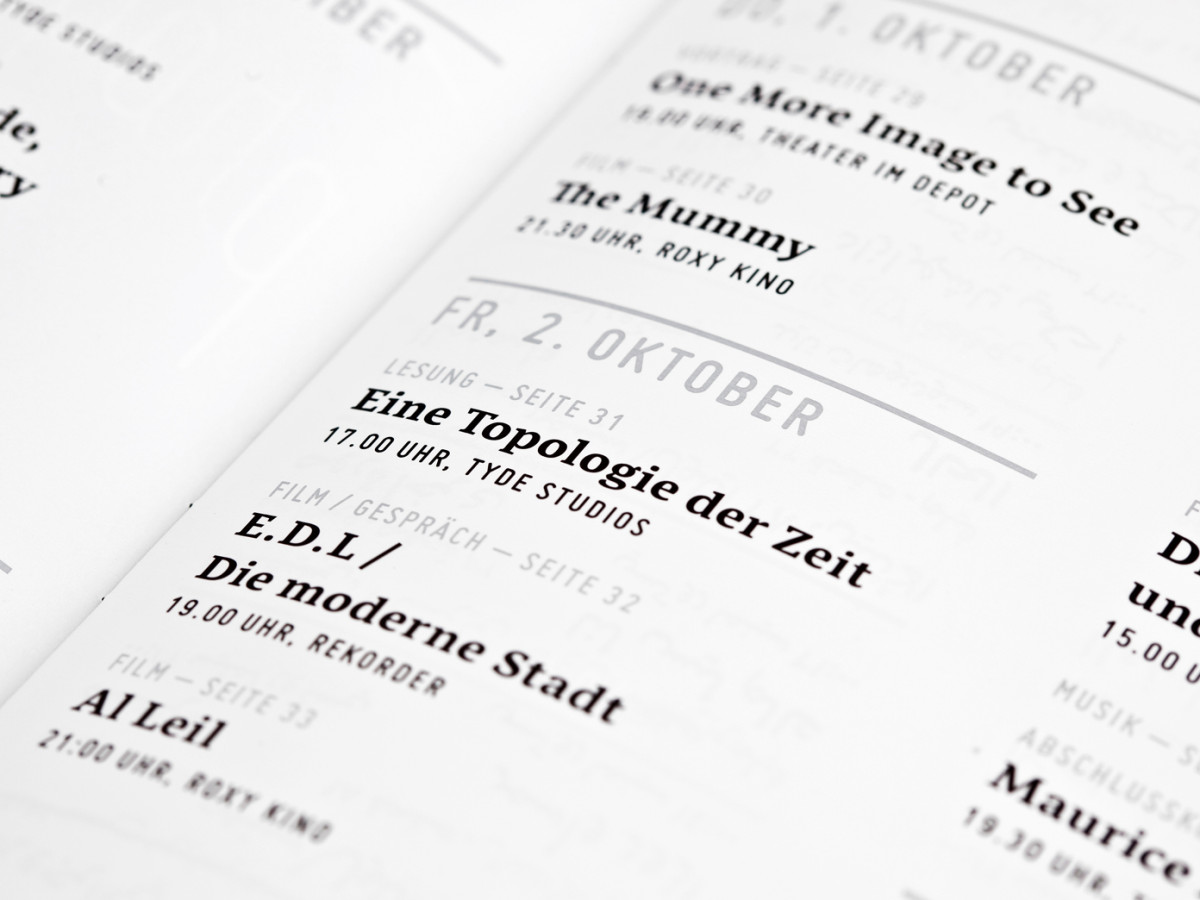 TYDE STUDIOS
DO, 1. OKTOBER
VORTRAG — SEITE 29
One More Image to See
18.00 UHR, THEATER IM DEPOT
FILM — SEITE 30
The Mummy
21.30 UHR, ROXY KINO
FR, 2. OKTOBER
LESUNG — SEITE 31
Eine Topologie der Zeit
17.00 UHR, TYDE STUDIOS
FILM / GESPRÄCH — SEITE 32
E.D.L /
Die moderne Stadt
19.00 UHR, REKORDER
FILM — SEITE 33
Al Leil
21:00 UHR, ROXY KINO
15.00 U
MUSIK —
Maurice
19.30 UHR,